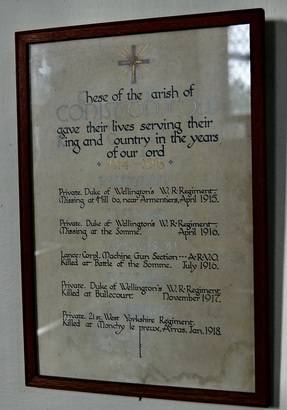 hese of the arish of
gave their lives serving their
King and ountry in the years
of our ord
1914-1918
Private. Duke of Wellington's W.R. Regiment.
Missing at Hill 60, near Armentiers, April 1915.
Private. Duke of Wellington's W.R. Regiment.
Missing at the Somme. April 1916.
Lance: Corpl. Machine Gun Section
Killed at Battle of the Somme. July 1916.
Private. Duke of Wellington's W.R. Regiment.
Killed at Bullecourt. November 1917.
Private. 21st West Yorkshire Regiment.
Killed at Monchy le preux, Arras. Jan. 1918.